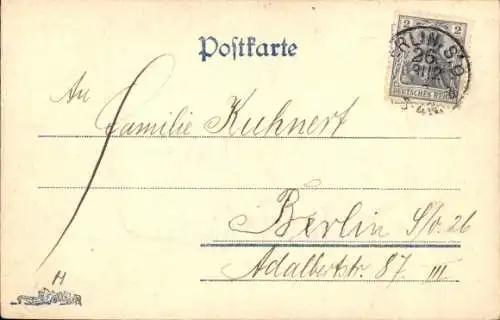 Postkarte
2 2
DEUTSCHES REICH
BERLIN S.O.
26
An
Familie Kuhnert
Berlin S/o. 26
Adalbertstr. 87. III.
H